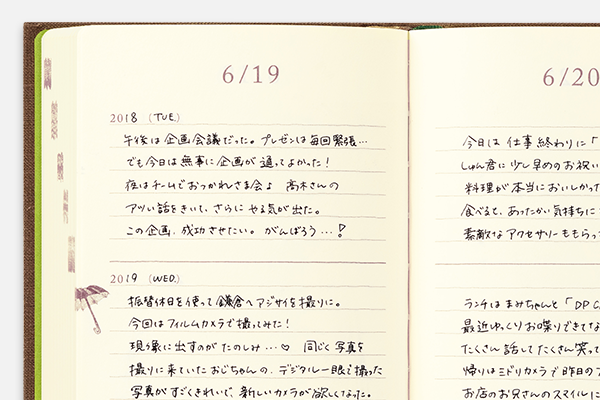 6/19
2018 (TUE.)
午後は企画会議だった。プレゼンは毎回緊張…
でも今日は無事に企画が通ってよかった!
夜はチームでおつかれさま会♪ 高木さんの
アツい話をきいて、さらにやる気が出た。
この企画、成功させたい。がんばろう…!
2019 (WED.)
振替休日を使って鎌倉へアジサイを撮りに。
今回はフィルムカメラで撮ってみた!
現像に出すのがたのしみ…♡ 同じく写真を
撮りに来ていたおじちゃんの、デジタル一眼で撮った
写真がすごくきれいで、新しいカメラが欲しくなった。
6/20
今日は仕事終わりに「
しゅん君に少し早めのお祝い
料理が本当においしかった
食べるて、あったかい気持ちに
素敵なアクセサリーももらっ
ランチはまみちゃんと「DP C
最近ゆっくりお喋りできてな
たくさん話してたくさん笑って
帰りはミドリカメラで昨日のフ
お店のお兄さんのスマイルに